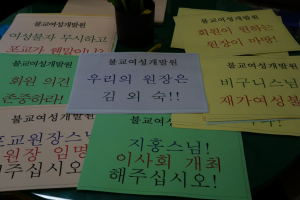 불교여성개발원
여성불자 무시하고
포교가 웬말이냐?
불교여성개발원
회원이 원하는
원장이 마땅!
불교여성개발원
회원 의견
존중하라!
불교여성개발원
우리의 원장은
김 외 숙!!
불교여성개발원
비구니스님
재가여성불
불교여성개발원
포교원장스님
원장 임명
해주십시오!
불교여성개발원
지홍스님!
이사회 개최
해주십시오!